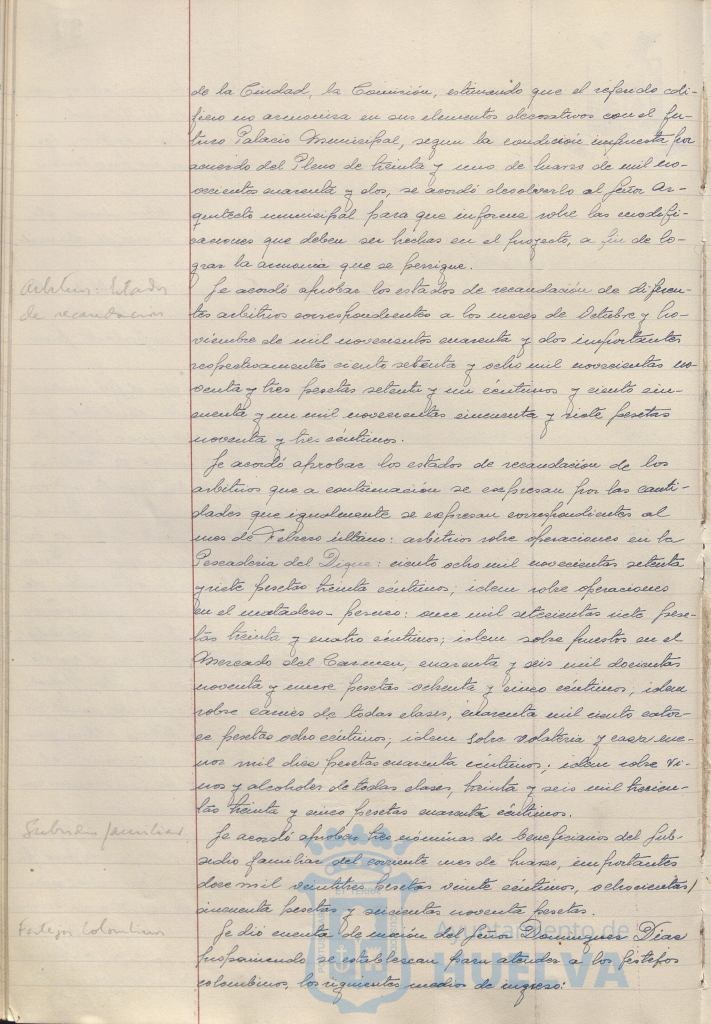 de la Ciudad, la Comisión, estimando que el referido edi-
ficio no armoniza en sus elementos decorativos con el fu-
turo Palacio Municipal, segun la condición impuesta por
acuerdo del Pleno de treinta y uno de Marzo de mil no-
vecientos cuarenta y dos, se acordó devolverlo al Señor Ar-
quitecto municipal para que informe sobre las modifi-
caciones que deben ser hechas en el proyecto, a fin de lo-
grar la armonia que se persigue.
Arbitrios: Estados
de recaudacion
Se acordó aprobar los estados de recaudación de diferen-
tes arbitrios correspondientes a los meses de Octubre y No-
viembre de mil novecientos cuarenta y dos importantes
respectivamentes ciento setenta y ocho mil novecientas no-
venta y tres pesetas setenta y un céntimos y ciento cin-
cuenta y un mil novecientas cincuenta y siete pesetas
noventa y tres céntimos.
Se acordó aprobar los estados de recaudación de los
arbitrios que a continuación se expresan por las canti-
dades que igualmente se expresan correspondientes al
mes de Febrero último: arbitrios sobre operaciones en la
Pescaderia del Dique: ciento ocho mil novecientas setenta
y siete pesetas treinta céntimos; idem sobre operaciones
en el matadero: once mil setecientas siete pese-
tas treinta y cuatro céntimos; idem sobre puestos en el
Mercado del Carmen, cuarenta y seis mil docientas
noventa y nueve pesetas ochenta y cinco céntimos; idem
sobre carnes de todas clases, cuarenta mil ciento cator-
ce pesetas ocho céntimos; idem sobre volateria y caza me-
nor mil dos pesetas cuarenta céntimos; idem sobre vi-
nos y alcoholes de todas clases, treinta y seis mil trecien-
tas treinta y cinco pesetas cuarenta céntimos.
Subsidio familiar
Se acordó aprobar tres nóminas de beneficiarios del Sub-
sidio familiar del corriente mes de Marzo, importantes
doce mil veintitres pesetas veinte céntimos, ochocientas
cincuenta pesetas y seicientas noventa pesetas.
Festejos Colombinos
Se dió cuenta de moción del Señor Dominguez Diaz
proponiendo se establezcan para atender a los festejos
colombinos, los siguientes medios de ingreso:
Ayuntamiento de
HUELVA